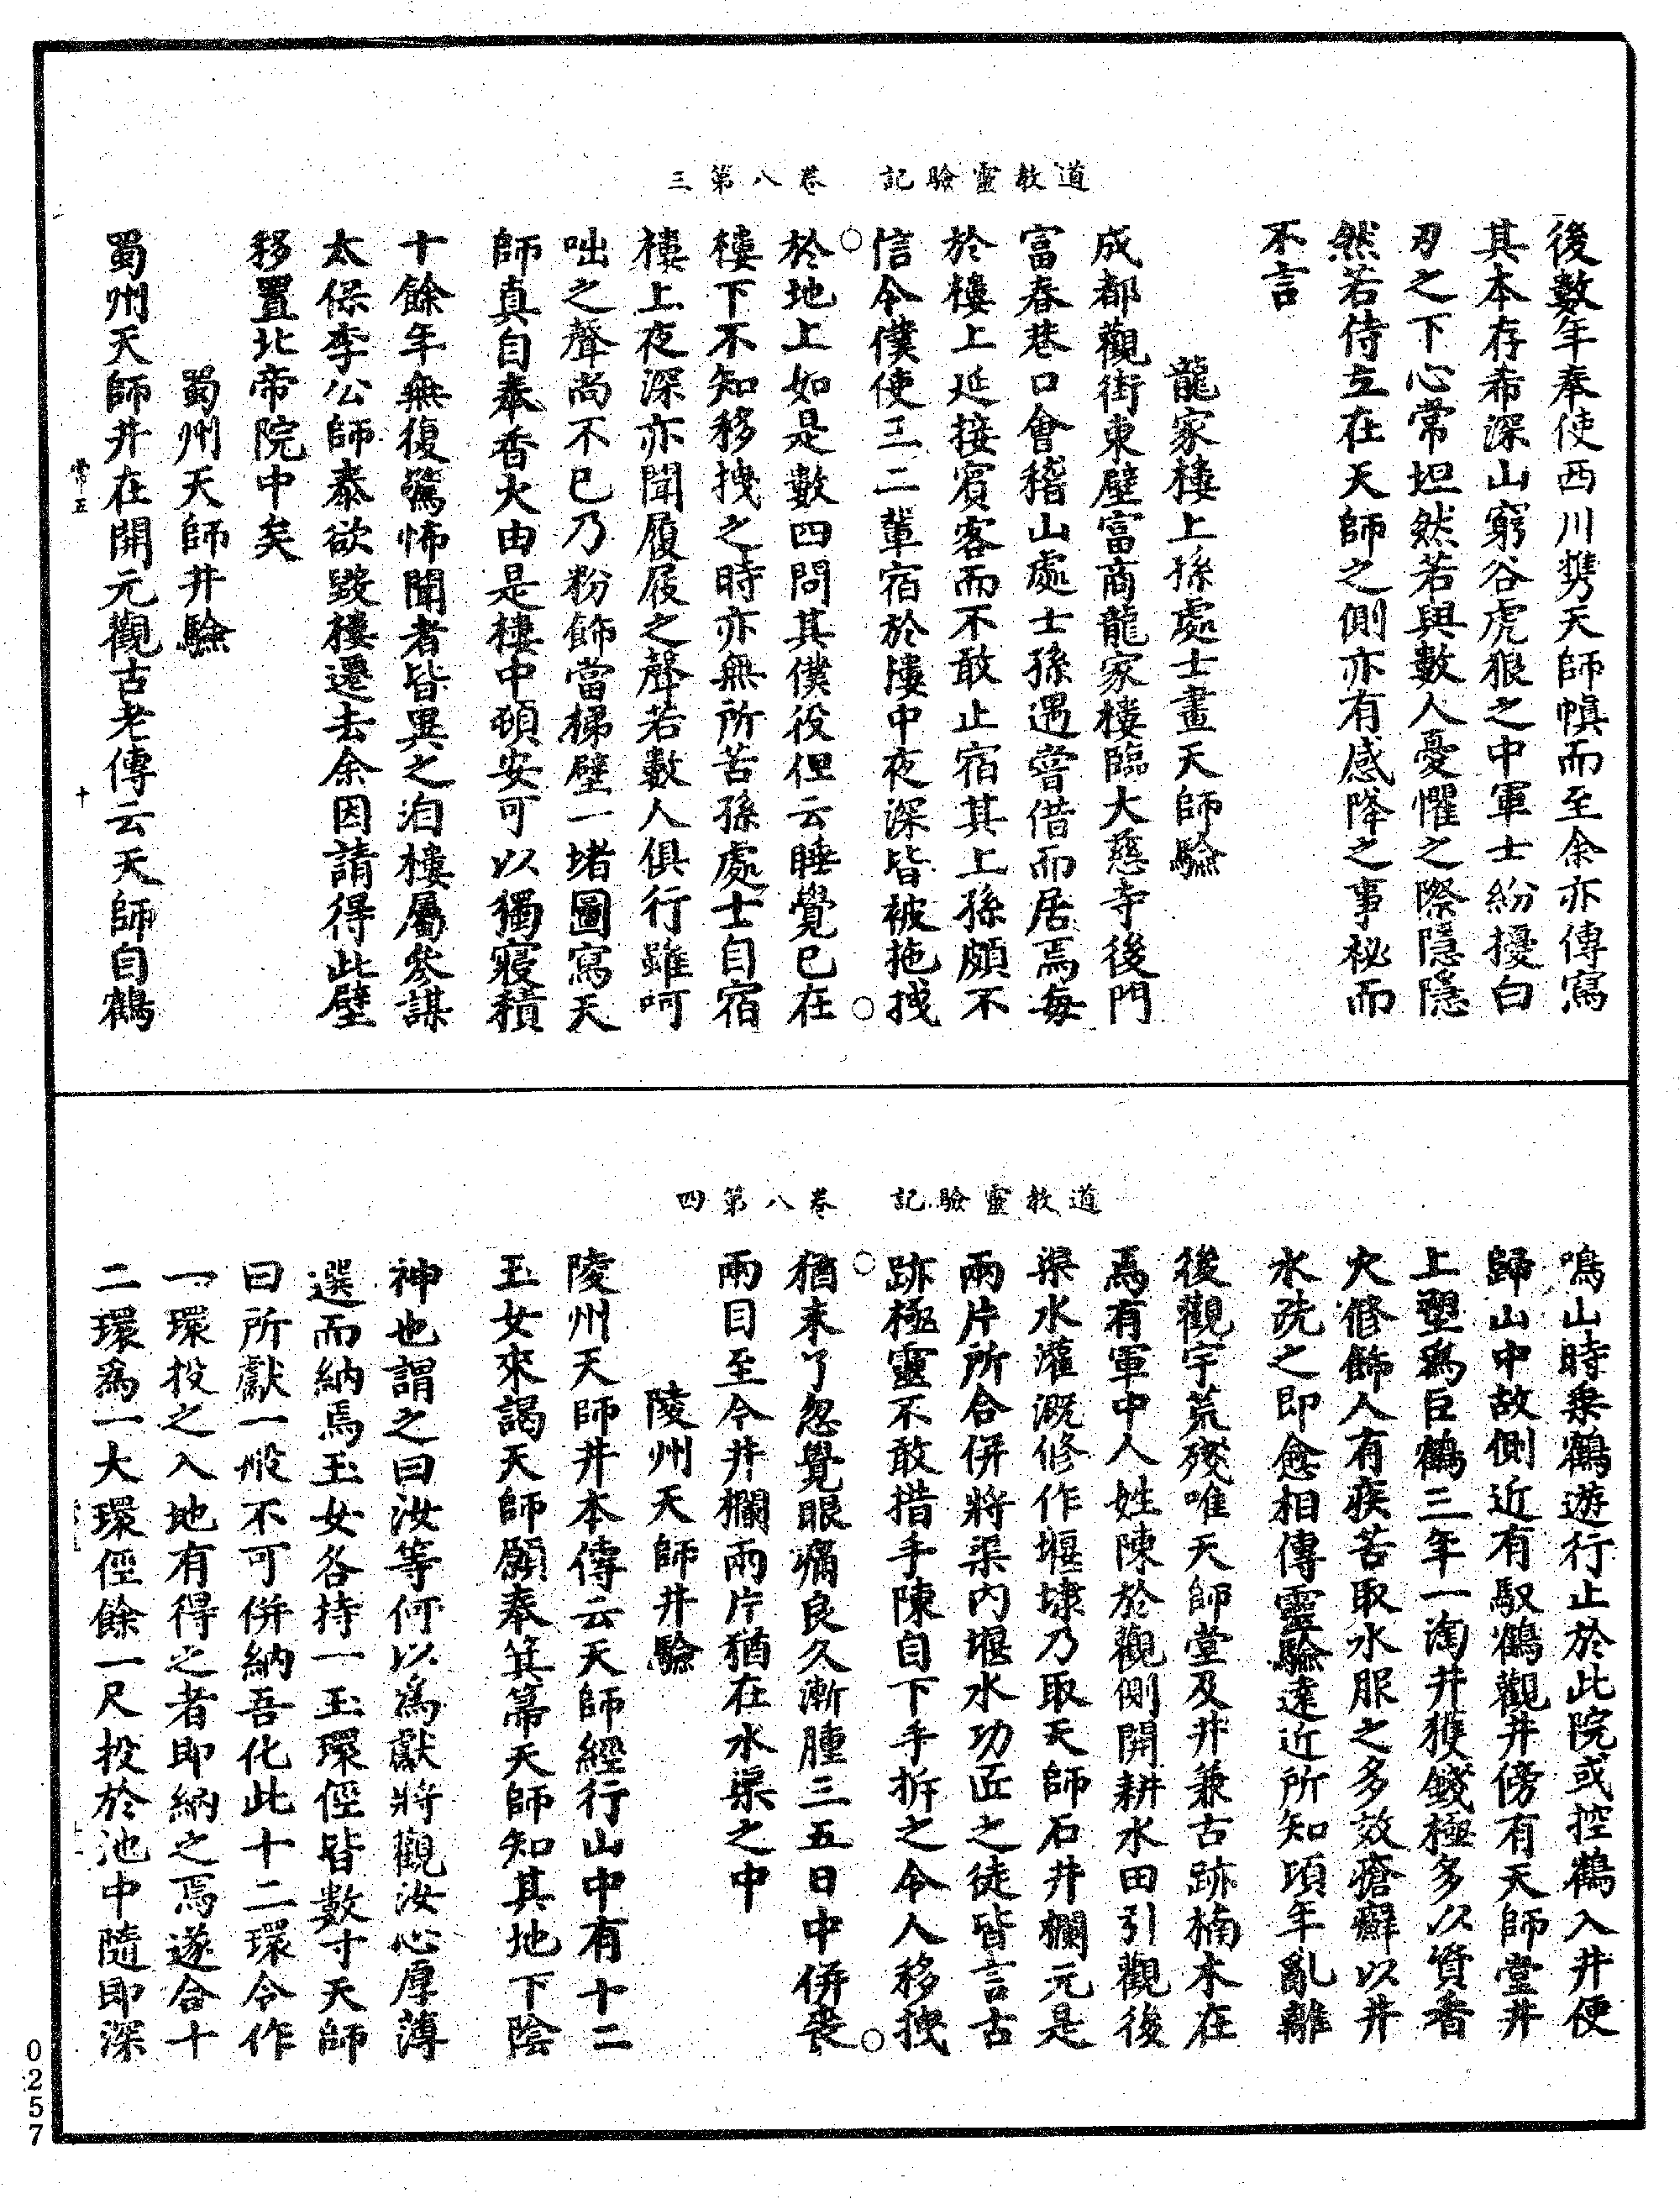 道教靈驗記　卷八第三
後數年奉使西川携天師幀而至余亦傳寫
其本存希深山窮谷虎狼之中軍士紛擾白
刃之下心常坦然若與數人憂懼之際隱隱
然若侍立在天師之側亦有感降之事秘而
不言
龍家樓上孫處士畫天師驗
成都觀街東壁富商龍家樓臨大慈寺後門
富春巷口會稽山處士孫遇嘗借而居焉每
於樓上延接賓客而不敢止宿其上孫頗不
信令僕使三二輩宿於樓中夜深皆被拖拽
於地上如是數四問其僕役但云睡覺已在
樓下不知移拽之時亦無所苦孫處士自宿
樓上夜深亦聞履屐之聲若數人俱行雖呵
咄之聲尚不已乃粉飾當梯壁一堵圖寫天
師真自奉香火由是樓中頓安可以獨寢積
十餘年無復驚怖聞者皆異之洎樓屬參謀
太保李公師泰欲毀樓遷去余因請得此壁
移置北帝院中矣
蜀州天師井驗
蜀州天師井在開元觀古老傳云天師自鶴
常五　十
道教靈驗記　卷八第四
鳴山時乘鶴遊行止於此院或控鶴入井便
歸山中故側近有馭鶴觀井傍有天師堂井
上塑爲巨鶴三年一淘井獲錢極多以資香
火修飾人有疾苦取水服之多效瘡癬以井
水洗之即愈相傳靈驗遠近所知頃年亂離
後觀宇荒殘唯天師堂及井兼古跡楠木在
焉有軍中人姓陳於觀側開耕水田引觀後
渠水灌溉修作堰埭乃取天師石井欄元是
兩片所合併將渠內堰水功匠之徒皆言古
跡極靈不敢措手陳自下手拆之令人移拽
猶未了忽覺眼痛良久漸腫三五日中併喪
兩目至今井欄兩片猶在水渠之中
陵州天師井驗
陵州天師井本傳云天師經行山中有十二
玉女來謁天師願奉箕箒天師知其地下陰
神也謂之曰汝等何以爲獻將觀汝心厚薄
選而納焉玉女各持一玉環徑皆數寸天師
曰所獻一般不可併納吾化此十二環令作
一環投之入地有得之者即納之焉遂合十
二環爲一大環徑餘一尺投於池中隨即深
0257